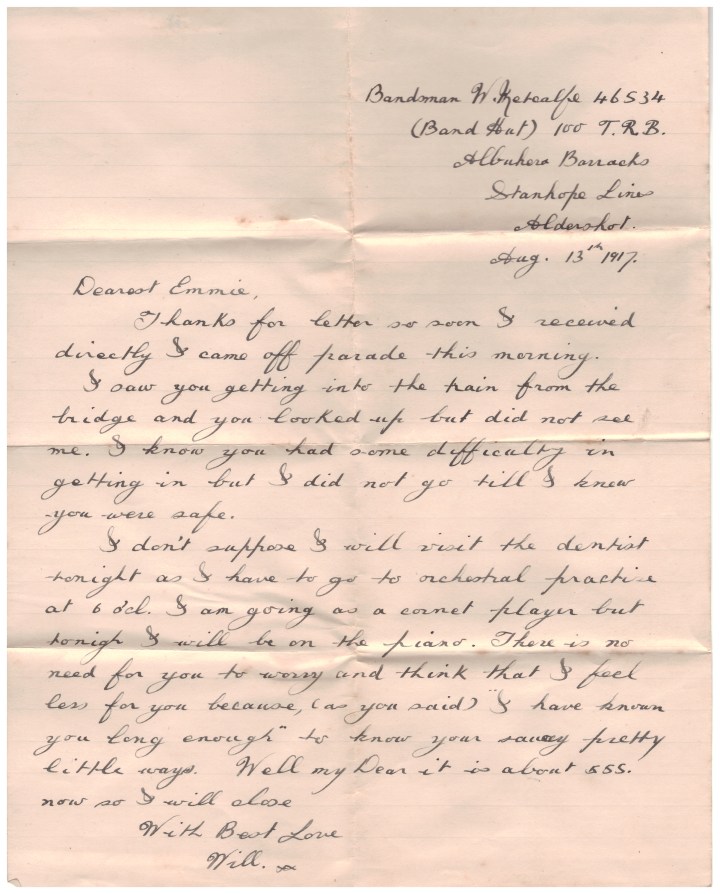 Bandsman W. Metcalfe 46534
(Band Hut) 100 T.R.B.
Albuhera Barracks
Stanhope Lines
Aldershot.
Aug. 13th 1917.
Dearest Emmie,
Thanks for letter so soon I received
directly I came off parade this morning.
I saw you getting into the train from the
bridge and you looked up but did not see
me. I know you had some difficulty in
getting in but I did not go till I knew
you were safe.
I don't suppose I will visit the dentist
tonight as I have to go to orchestral practise
at 6 o'cl. I am going as a cornet player but
tonigh I will be on the piano. There is no
need for you to worry and think that I feel
less for you because, (as you said) "I have known
you long enough" to know your saucy pretty
little ways. Well my Dear it is about 555.
now so I will close
With Best Love
Will. x